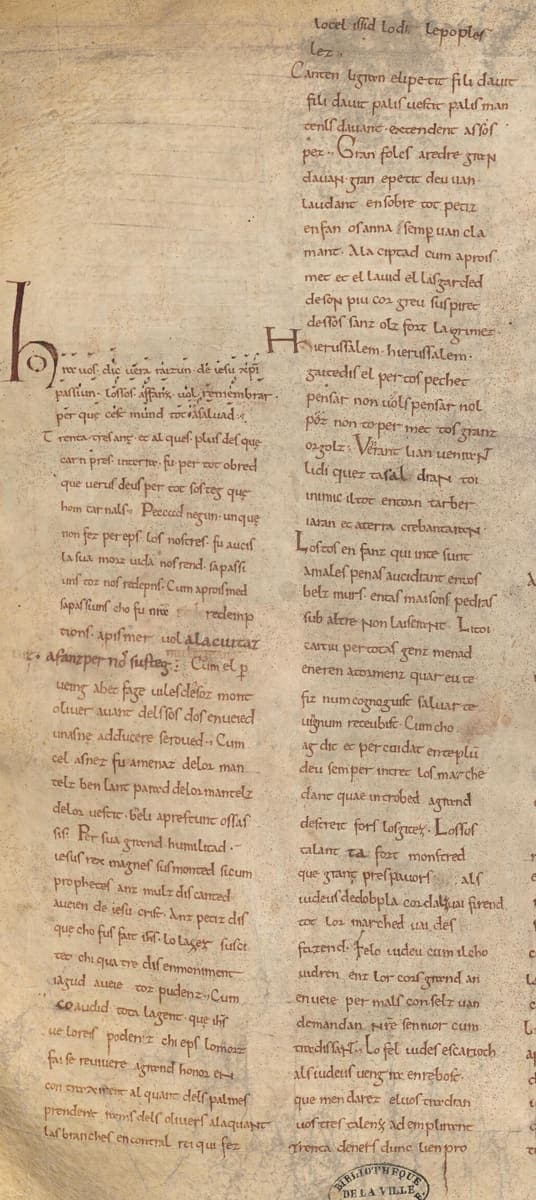 hora vos dic vera raizun de iesu xpi
passiun. lossos affanz vol remembrar.
per que cest mund tot a salvad.
Trenta tres anz et alques plus des que
carn pres in terra. fu per tot obred
que verus deus per tot sosteg que
hom carnals. Peccad negun unque
non fez per eps los nostres. fu aucis
la sua morz vida nos rend. sa passi
uns toz nos redepns. Cum aproismed
sa passiuns cho fu nr̄a redemp
tions. apismer vol a la ciutaz
afanz per nos susteg. Cum el p
veing a betfage vil es desoz mont
oliver avant dels sos dos enveied
un asne adducere se roved. Cum
cel asnez fu amenaz de lor man
telz ben lant parad de lor mantelz
de lor vestit. ben li aprestunt ossas
sis. Per sua grand humilitad.
iesus rex magnes sus monted sicum
prophetes anz mulz dis canted
aveien de iesu crist. Anz petiz dis
que cho fus fait ihs. lo lazer susci
tet chi quatre dis en moniment
iagud aveie toz pudenz. Cum
co audid tota la gent. que ihs
ve lo reis podenz chi eps lo morz
fai se revivere a grand honor en
contraxirent alquant dels palmes
prendent rams dels olivers alaquant
las branches encontral rei qui fez
lo cel issid lo di. le poples
lez.
Canten li gran e li petit fili davit
fili davit palis vestit palis man
tenls davant. extendent assos
pez. Gran foles aredre gran
davan. gran e petit deu van
laudant. ensobre tot petiz
enfan osanna semp van cla
mant. A la ciptad cum aprois
met et el la vid el las garded
de son piu cor greu suspiret
dessos sanz olz fort lagrimez.
Hierussalem. hierussalem.
gaitedis el per tos pechet
pensar non vols pensar nol
poz non to permet tos granz
orgolz. Verant lian veniran
lidi quez tasaldran toi
inimic il tot entorn tarber
iaran et a terra crebantaran.
Los tos enfanz qui in te sunt
a males penas aucidrant en tos
belz murs. en tas maisons pedras
sub altre non laiserant. Li toi
caitiu per totas genz menad
en eren a tormenz quar eu te
fiz num cognoguist salvar te
vign num receubist. Cum cho
ag dit et percuidat en teplu
deu semper intret los marche
dant quae in trobed a grand
destreit fors los gitez. Los sos
talant ta fort monstred
que grant pres pavors als
iudeus de dobpla cor dalz vai firend
tot lor marched vai des
fazend. Felo iudeu cum il cho
vidren enz lor cors grand an
enveie per mals conselz van
demandan. nr̄e sennior cum
tradissant. Lo fel iudes escarioth
als iudeus veng ra en rebost.
que men darez el vos tradran
vos tres talenz ademplirant
Trenta deners dunc lien pro
BIBLIOTHEQUE
DE LA VILLE